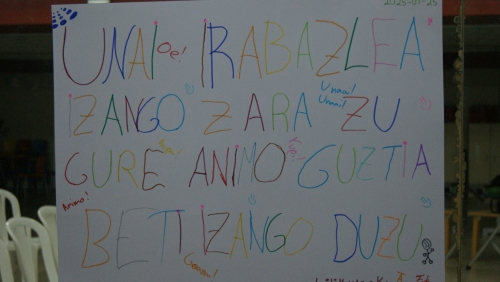 2025-07-25
UNAI Oe! IRABAZLEA
IZANGO ZARA ZU
Unaai!
Unaai!
GURE ANIMO GUZTIA
Animo!
BETI IZANGO DUZU